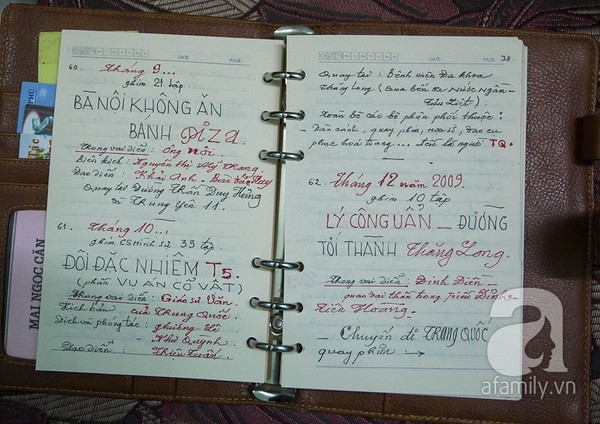 DATE: PAGE:
60. Tháng 9...
phim 21 tập
BÀ NỘI KHÔNG ĂN
BÁNH PIZA.
Trong vai diễn: Ông Nội.
Biên kịch: Nguyễn Thị Mỹ Trang.
Đạo diễn: Khải Anh - Bùi Tiến Huy
Quay tại Đường Trần Duy Hưng
và Trung Yên 11.
61. Tháng 10...
phim CS hình sự 35 tập.
ĐỘI ĐẶC NHIỆM T5.
(phần VỤ ÁN CỔ VẬT)
Trong vai diễn: Giáo sư Văn.
Kịch bản của Trung Quốc.
Dịch và phóng tác:
Như Quỳnh.
Đạo diễn: Triệu Tuấn.
DATE: PAGE: 38.
Quay tại: Bệnh viện Đa khoa
Thăng Long (Qua bến xe Nước Ngầm-
Toàn bộ các bộ phận phối thuộc:
- dàn cảnh, quay phim, họa sĩ, đạo cụ
phục hóa trang... đều là người TQ.
62. Tháng 12 năm 2009.
phim 10 tập
LÝ CÔNG UẨN _ ĐƯỜNG
TỚI THÀNH Thăng Long.
Trong vai diễn: Đinh Điền -
quan đại thần trong triều Đinh
Tiên Hoàng.
- Chuyến đi TRUNG QUỐC
quay phim :→
MAI NGỌC CĂN
PHÚ
a
afamily.vn